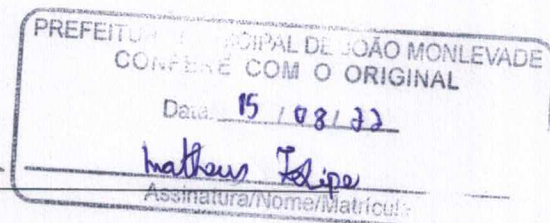 PREFEITURA MUNICIPAL DE JOÃO MONLEVADE
CONFERE COM O ORIGINAL
Data: 15 / 08 / 22
Matheus Felipe
Assinatura/Nome/Matrícula